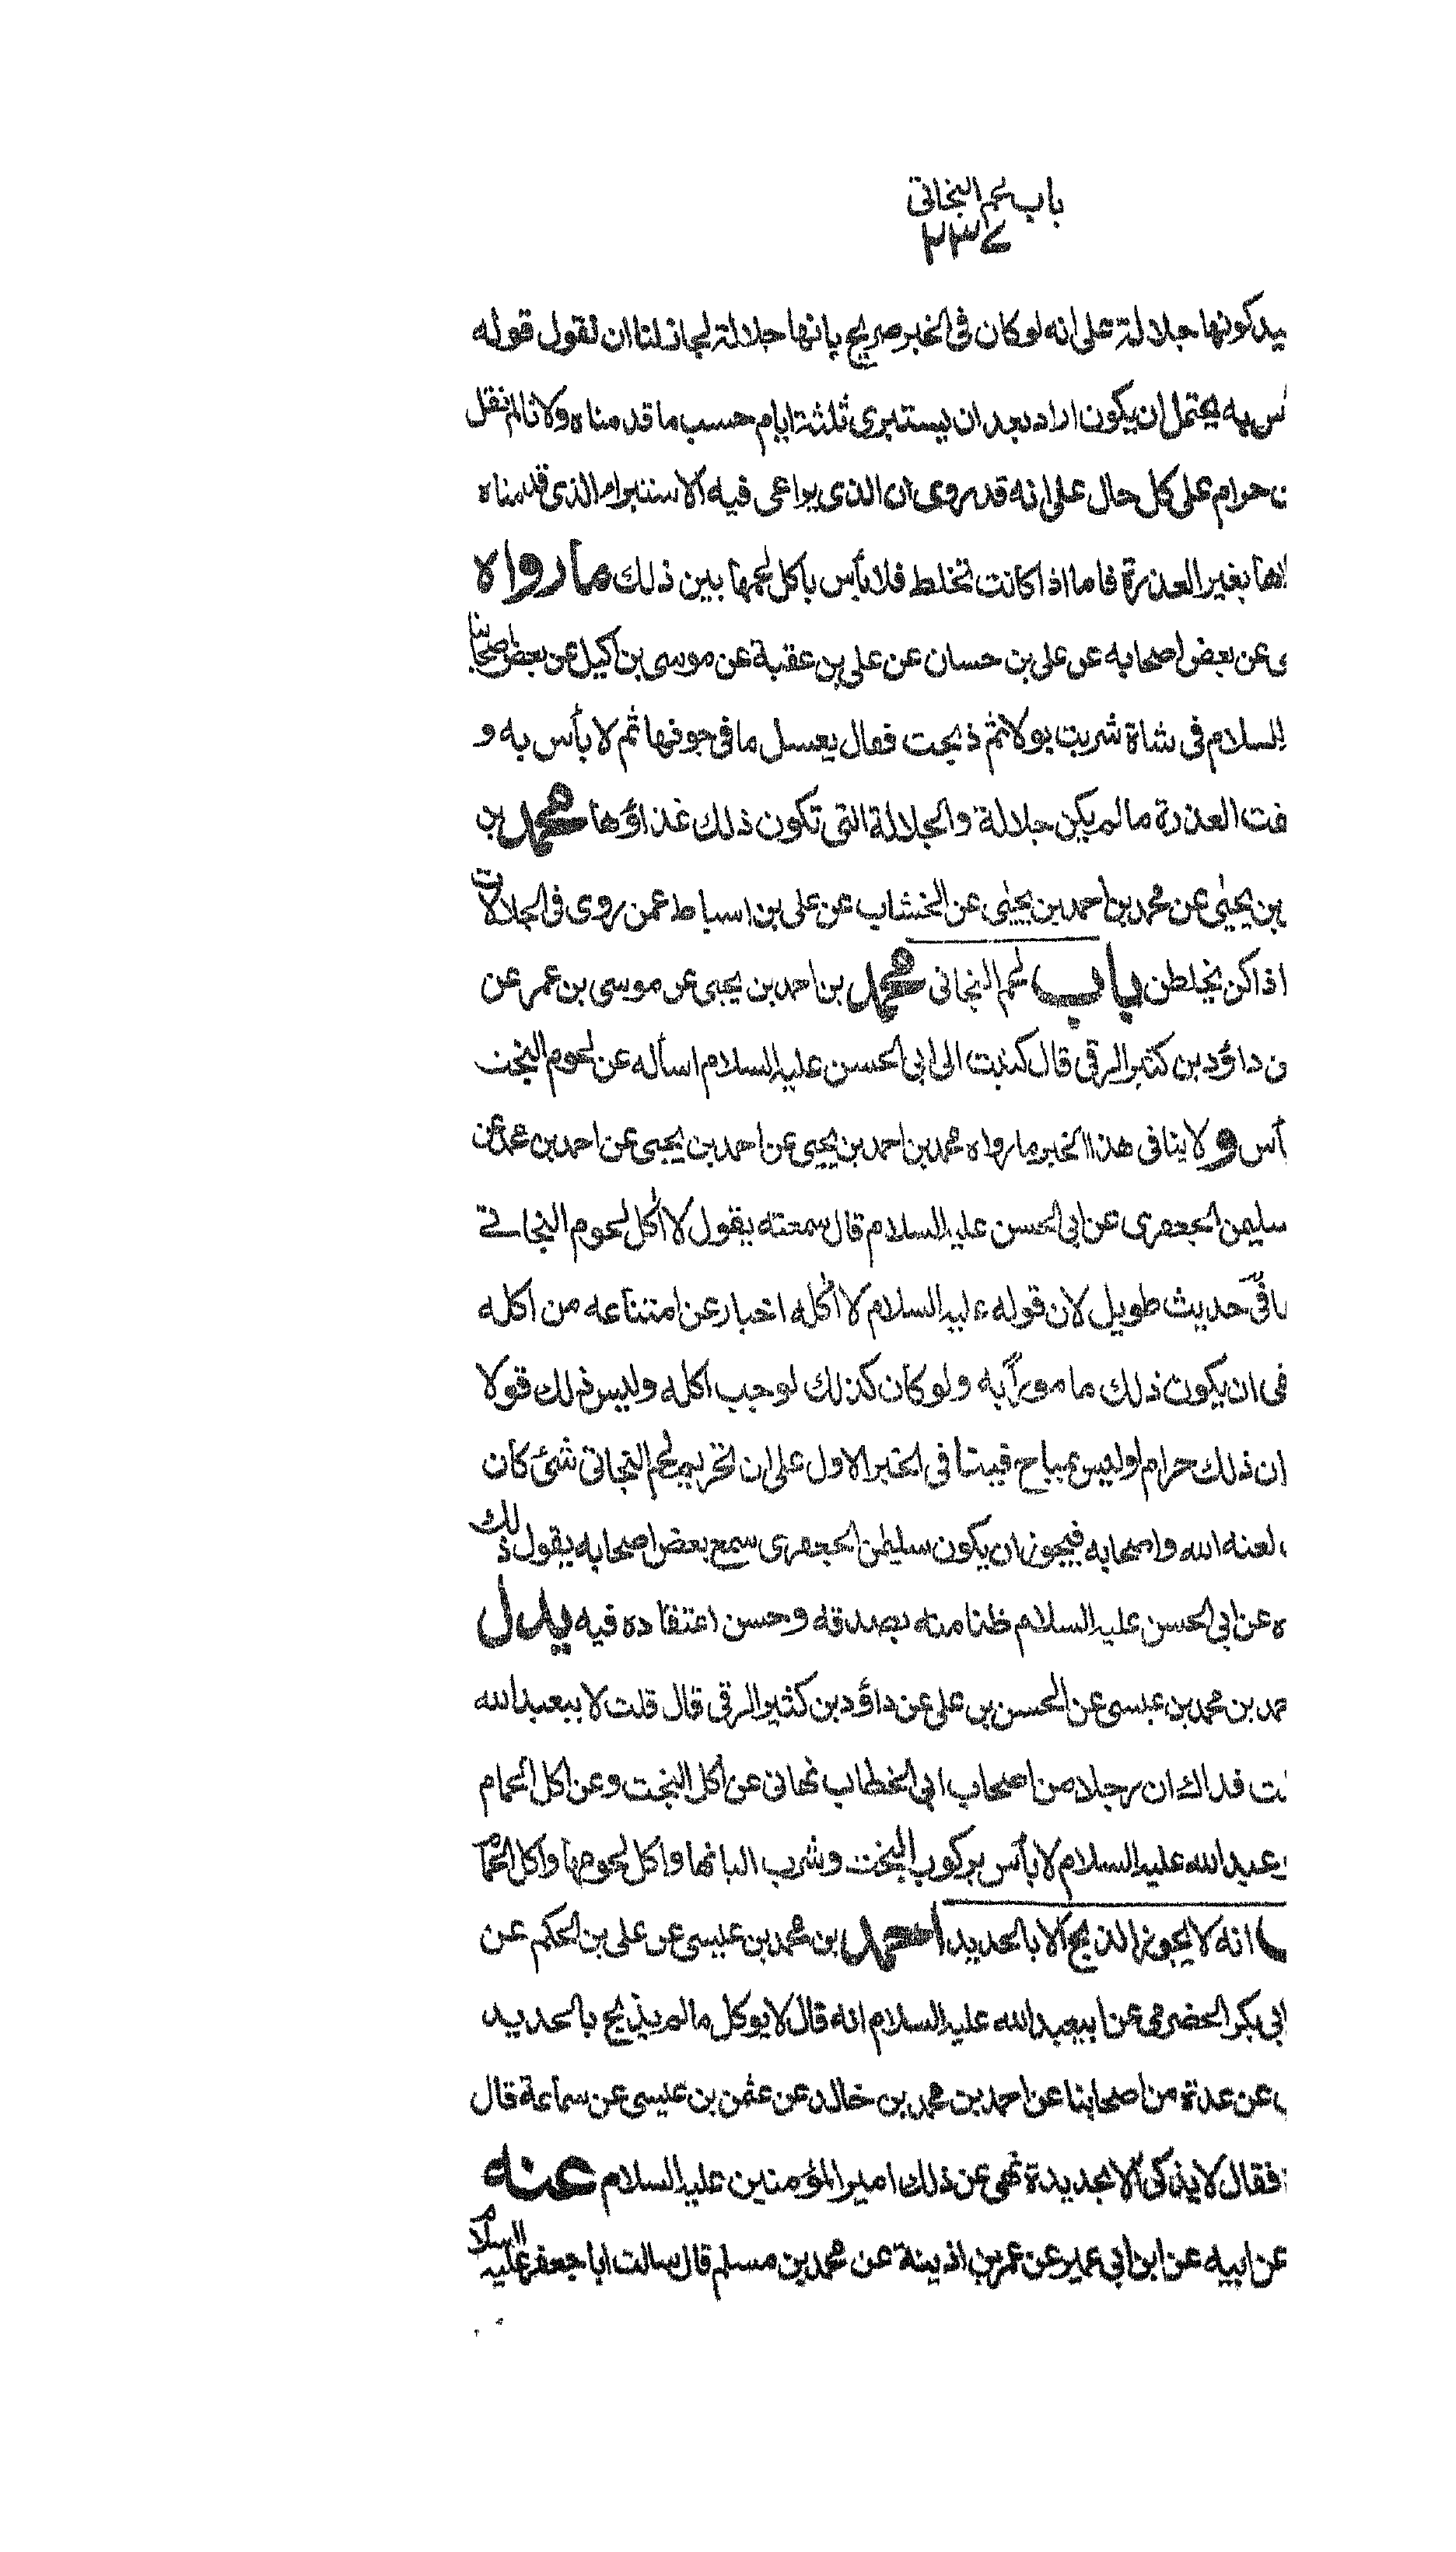 باب لحم البخاتي
٢٣٤
كونها جلالة على انه لو كان في الخبر صريح بانها جلالة لجاز لنا ان نقول قوله
به يحتمل ان يكون اراد بعد ان يستبرئ ثلثة ايام حسب ما قدمناه ولانا لم نقل
حرام على كل حال على انه قد روى ان الذي يراعى فيه الاستبراء الذي قدمناه
بغير العذرة فاما اذا كانت تخلط فلا بأس باكل لحمها بين ذلك ما رواه
عن بعض اصحابه عن على بن حسان عن على بن عقبة عن موسى بن اكيل عن بعض اصحابنا
السلام في شاة شربت بولا ثم ذبحت فقال يغسل ما في جوفها ثم لا بأس به و
العذرة ما لم يكن جلالة والجلالة التي تكون ذلك غذاؤها محمد بن
بن يحيى عن محمد بن احمد بن يحيى عن الخشاب عن على بن اسباط عمن روى في الجلالات
اذا كن يخلطن باب لحم البخاتى محمد بن احمد بن يحيى عن موسى بن عمر عن
داؤد بن كثير الرقى قال كتبت الى ابي الحسن عليه السلام اسأله عن لحوم البخت
ولا ينافى هذا الخبر ما رواه محمد بن احمد بن يحيى عن احمد بن يحيى عن احمد بن محمد عن
سليمن الجعفرى عن ابي الحسن عليه السلام قال سمعته يقول لا آكل لحوم البخاتے
حديث طويل لان قوله عليه السلام لا آكله اخبار عن امتناعه من اكله
فى ان يكون ذلك ما مورا به ولو كان كذلك لوجب اكله وليس ذلك قولا
ان ذلك حرام او ليس بمباح فيتنا فى الخبر الاول على ان تحريم لحم البخاتى شئ كان
لعنه الله واصحابه فيجوز ان يكون سليمن الجعفرى سمع بعض اصحابه يقول ذلك
عن ابي الحسن عليه السلام ظنا منه بصدقه وحسن اعتقاده فيه يدل
بن محمد بن عيسى عن الحسن بن على عن داؤد بن كثير الرقى قال قلت لابيعبدالله
فداك ان رجلا من اصحاب ابي الخطاب نهانى عن اكل البخت وعن اكل الحمام
عبد الله عليه السلام لا بأس بركوب البخت وشرب البانها واكل لحومها واكل الحمام
انه لا يجوز الذبح الا بالحديد احمد بن محمد بن عيسى عن على بن الحكم عن
ابى بكر الحضرمى عن ابيعبدالله عليه السلام انه قال لا يوكل ما لم يذبح بالحديد
عن عدة من اصحابنا عن احمد بن محمد بن خالد عن عثمن بن عيسى عن سماعة قال
فقال لا يذكى الا بحديدة نهى عن ذلك امير المؤمنين عليه السلام عنه
عن ابيه عن ابن ابي عمير عن عمر بن اذينة عن محمد بن مسلم قال سالت ابا جعفر عليه السلام